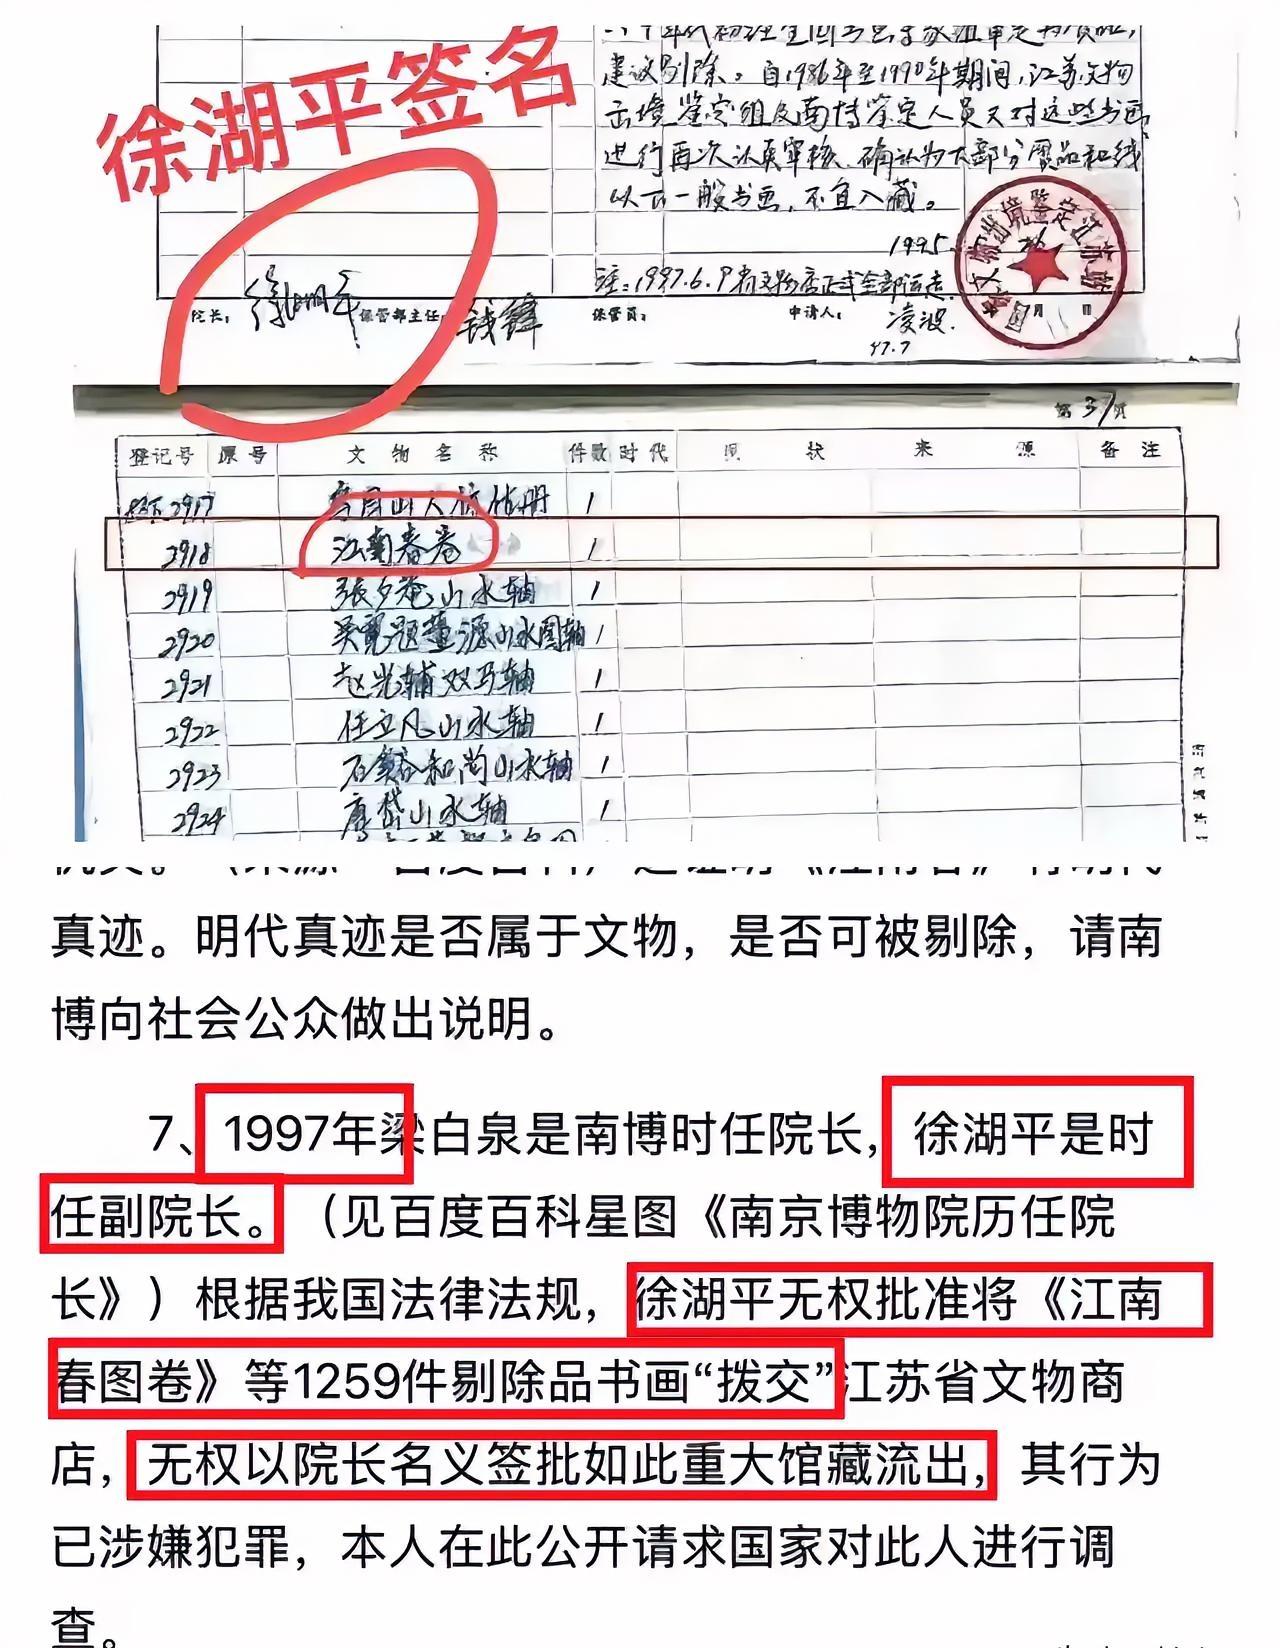 徐湖平签名
建议剔除。自1986年至1990年期间,江苏文物
出境鉴定组及南博鉴定人员又对这些书画
进行再次认真审核,确认为大部分赝品和线
以下一般书画,不宜入藏。
1995.
注:1997.6.9
院长: 徐湖平 保管部主任: 钱锋 保管员: 申请人: 凌波. 月 日
97.7
第31页
登记号 原号 文物名称 件数 时代 现状 来源 备注
2917 1
2918 江南春卷 1
2919 張夕庵山水轴 1
2920 吴寛题董源山水图轴 1
2921 赵光辅双马轴 1
2922 任立凡山水轴 1
2923 石溪和尚山水轴 1
2924 唐岱山水轴 1
真迹。明代真迹是否属于文物，是否可被剔除，请南
博向社会公众做出说明。
7、1997年梁白泉是南博时任院长，徐湖平是时
任副院长。（见百度百科星图《南京博物院历任院
长》）根据我国法律法规，徐湖平无权批准将《江南
春图卷》等1259件剔除品书画“拨交”江苏省文物商
店，无权以院长名义签批如此重大馆藏流出，其行为
已涉嫌犯罪，本人在此公开请求国家对此人进行调
查。